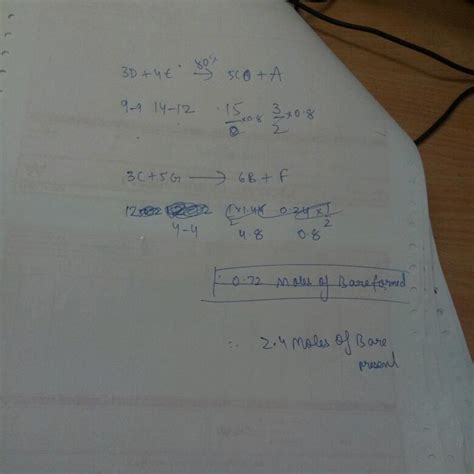 3D + 4E 80% → 5C + A
9-9 14-12 15/2 ×0.8 3/2 ×0.8
3C + 5G → 6B + F
12
4-4 4.8 0.8
0.72 Moles of B are formed
∴ 2.4 Moles of B are present